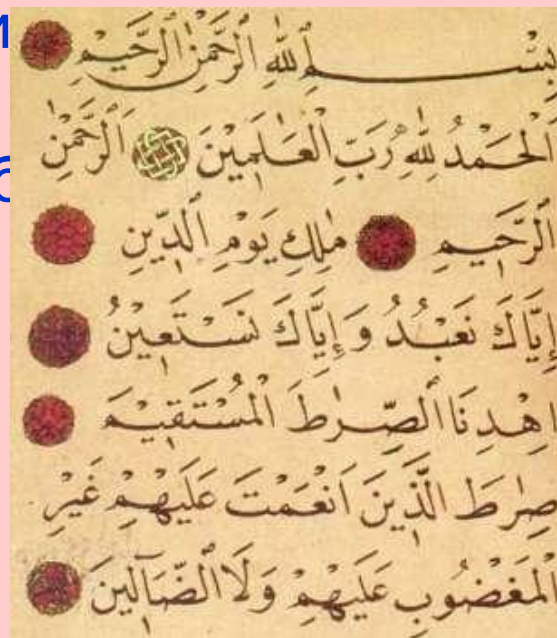 بِسْمِ اللهِ الرَّحْمٰنِ الرَّحِيْمِ
اَلْحَمْدُ لِلّٰهِ رَبِّ الْعَالَمِيْنَ اَلرَّحْمٰنِ
الرَّحِيْمِ مٰلِكِ يَوْمِ الدِّيْنِ
اِيَّاكَ نَعْبُدُ وَ اِيَّاكَ نَسْتَعِيْنُ
اِهْدِنَا الصِّرٰطَ الْمُسْتَقِيْمَ
صِرٰطَ الَّذِيْنَ اَنْعَمْتَ عَلَيْهِمْ غَيْرِ
الْمَغْضُوْبِ عَلَيْهِمْ وَلَا الضَّآلِّيْنَ